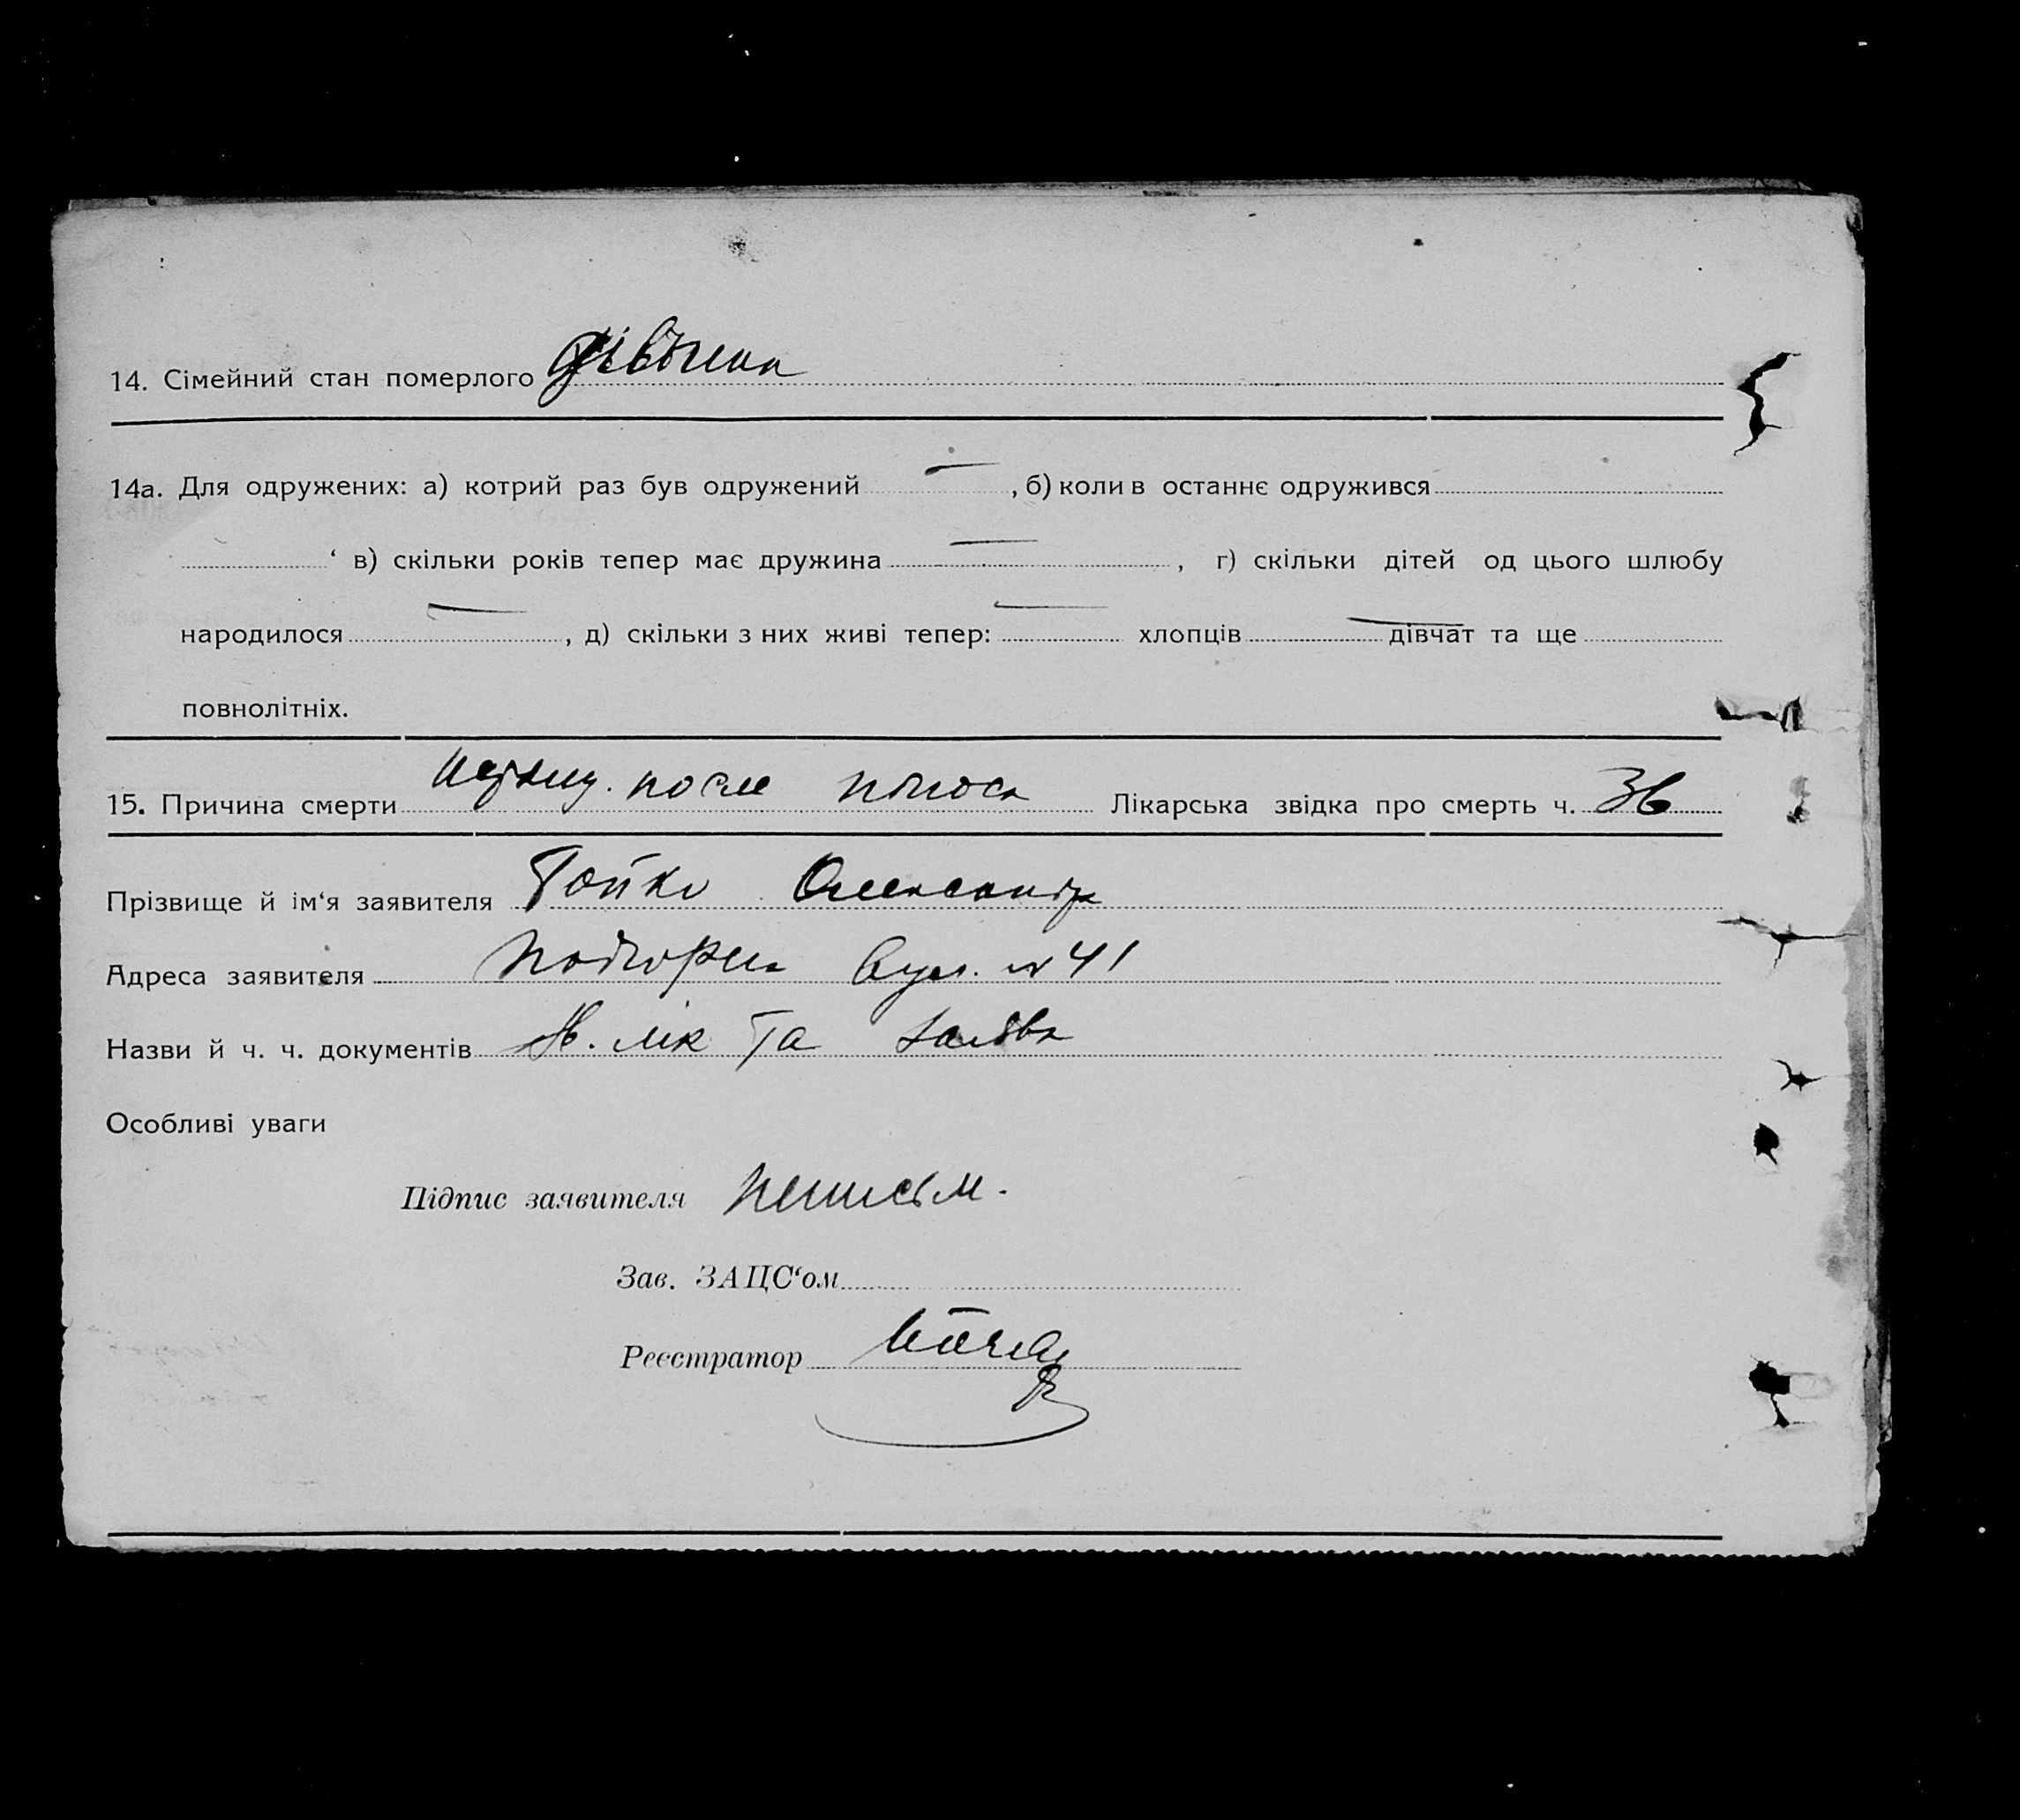 14. Сімейний стан померлого дівчина
14а. Для одружених: а) котрий раз був одружений — , б) коли в останнє одружився
в) скільки років тепер має дружина — , г) скільки дітей од цього шлюбу
народилося — , д) скільки з них живі тепер: — хлопців — дівчат та ще
повнолітніх.
15. Причина смерти после поноса Лікарська звідка про смерть ч. 36
Прізвище й ім‘я заявителя Олександр
Адреса заявителя вул. № 41
Назви й ч. ч. документів лік та заява
Особливі уваги
Підпис заявителя неписьм.
Зав. ЗАЦС‘ом
Реєстратор